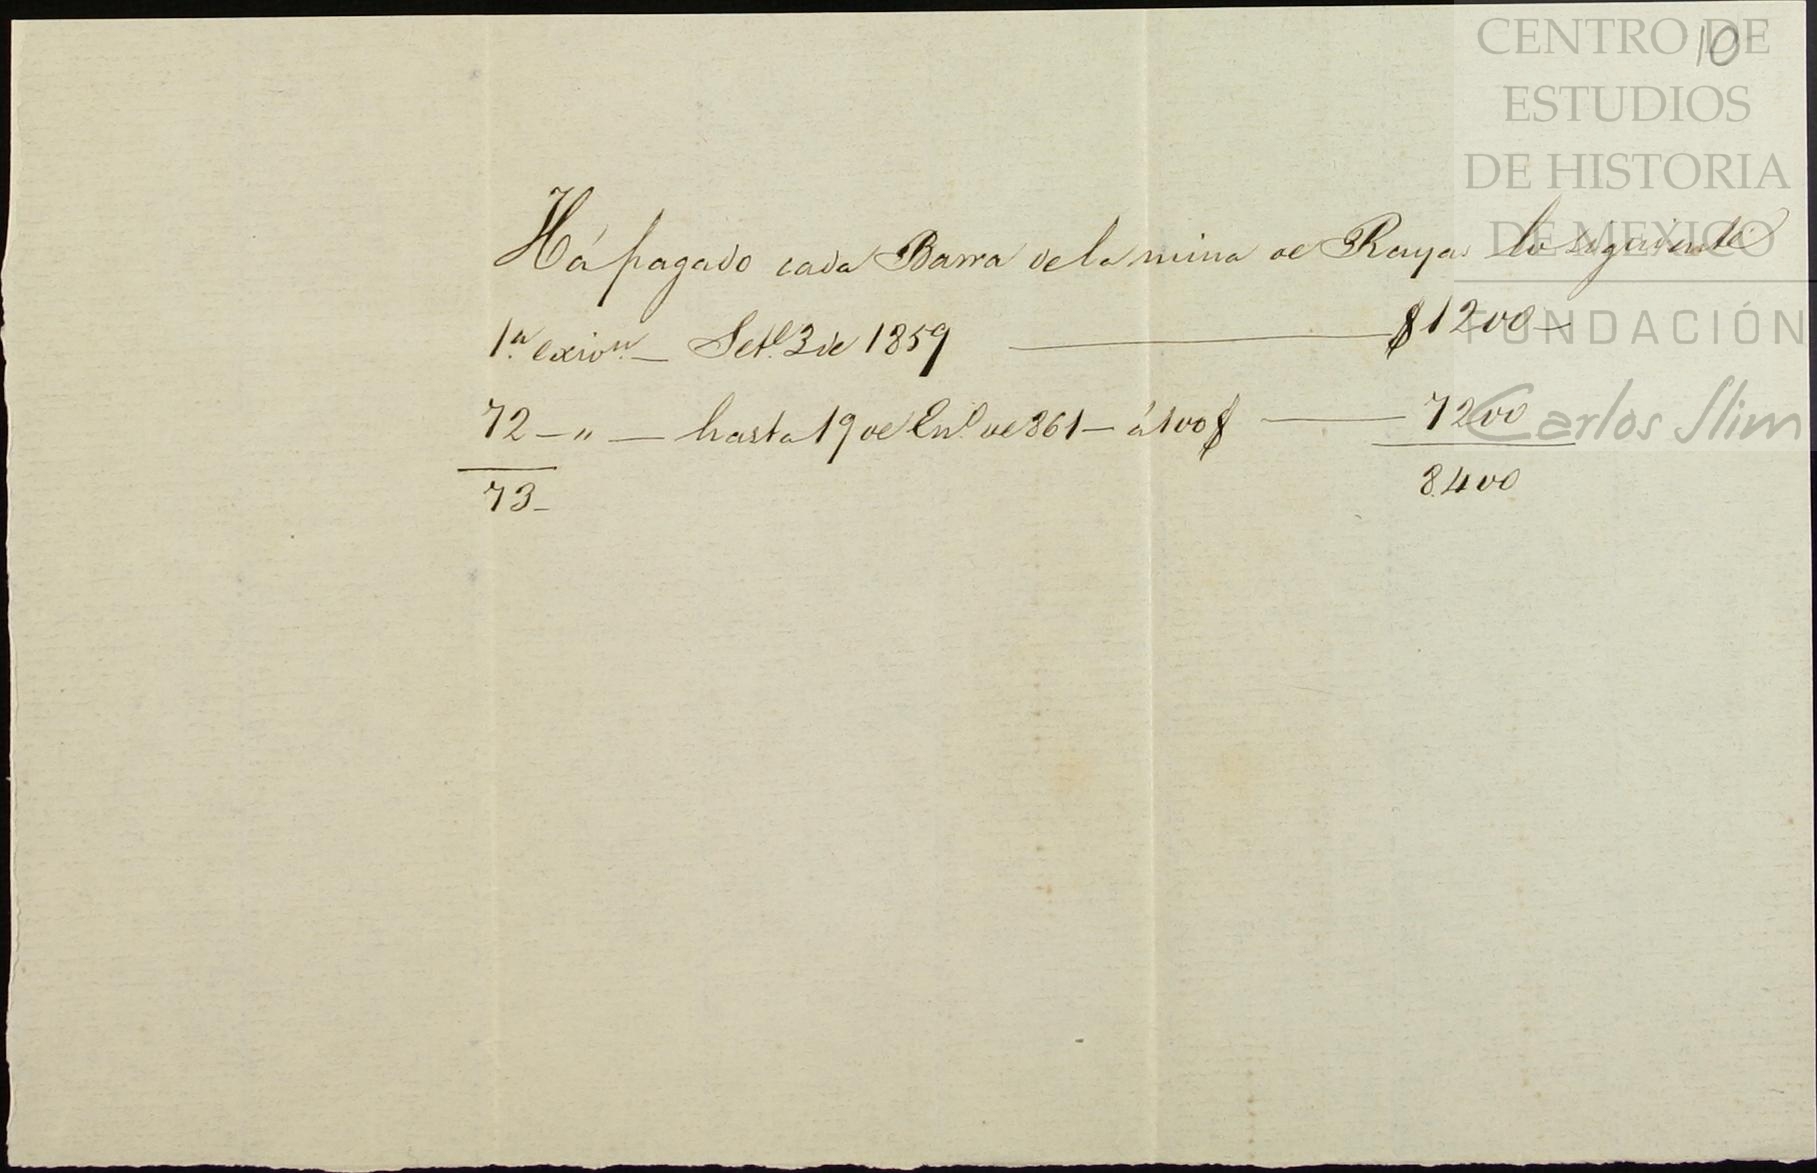 CENTRO DE
10
ESTUDIOS
DE HISTORIA
DE MEXICO
FUNDACIÓN
Carlos Slim
Há pagado cada Barra de la mina de Rayas lo siguiente
1.ª exion. — Set.e 3 de 1859 — $1200 —
72 — " — hasta 19 de En.o de 861 — á 100 $ — 7200
73 — 8.400